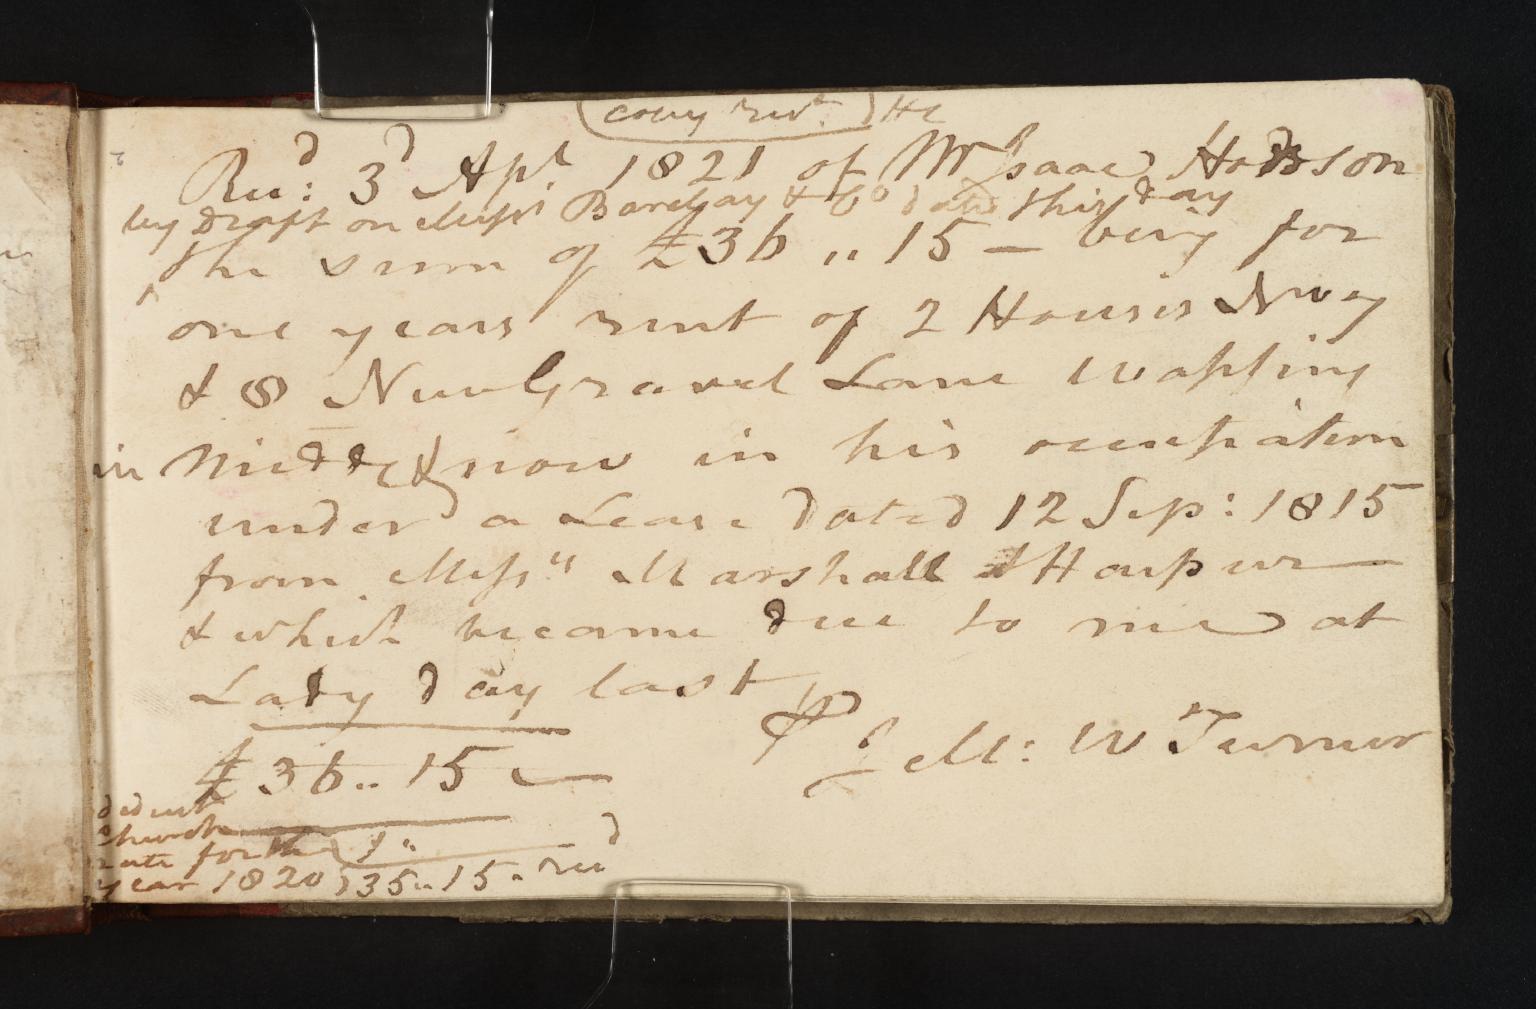 copy rect. HC
Recd: 3d Apl. 1821 of Mr Isaac Hobson
by Draft on Messrs Barclay & Co date this day
^ the sum of £36 ,, 15 — being for
one years rent of 2 Houses No 7
& 8 New Gravel Lane Wapping
in Middx & now in his occupation
under a Lease dated 12 Sep: 1815
from Messrs Marshall & Harper —
& which became due to me at
Lady day last
£36 ,, 15 —
J M: W Turner
deduct
church
rate for the 1 ,,
year 1820 } 35 ,, 15 ,, recd